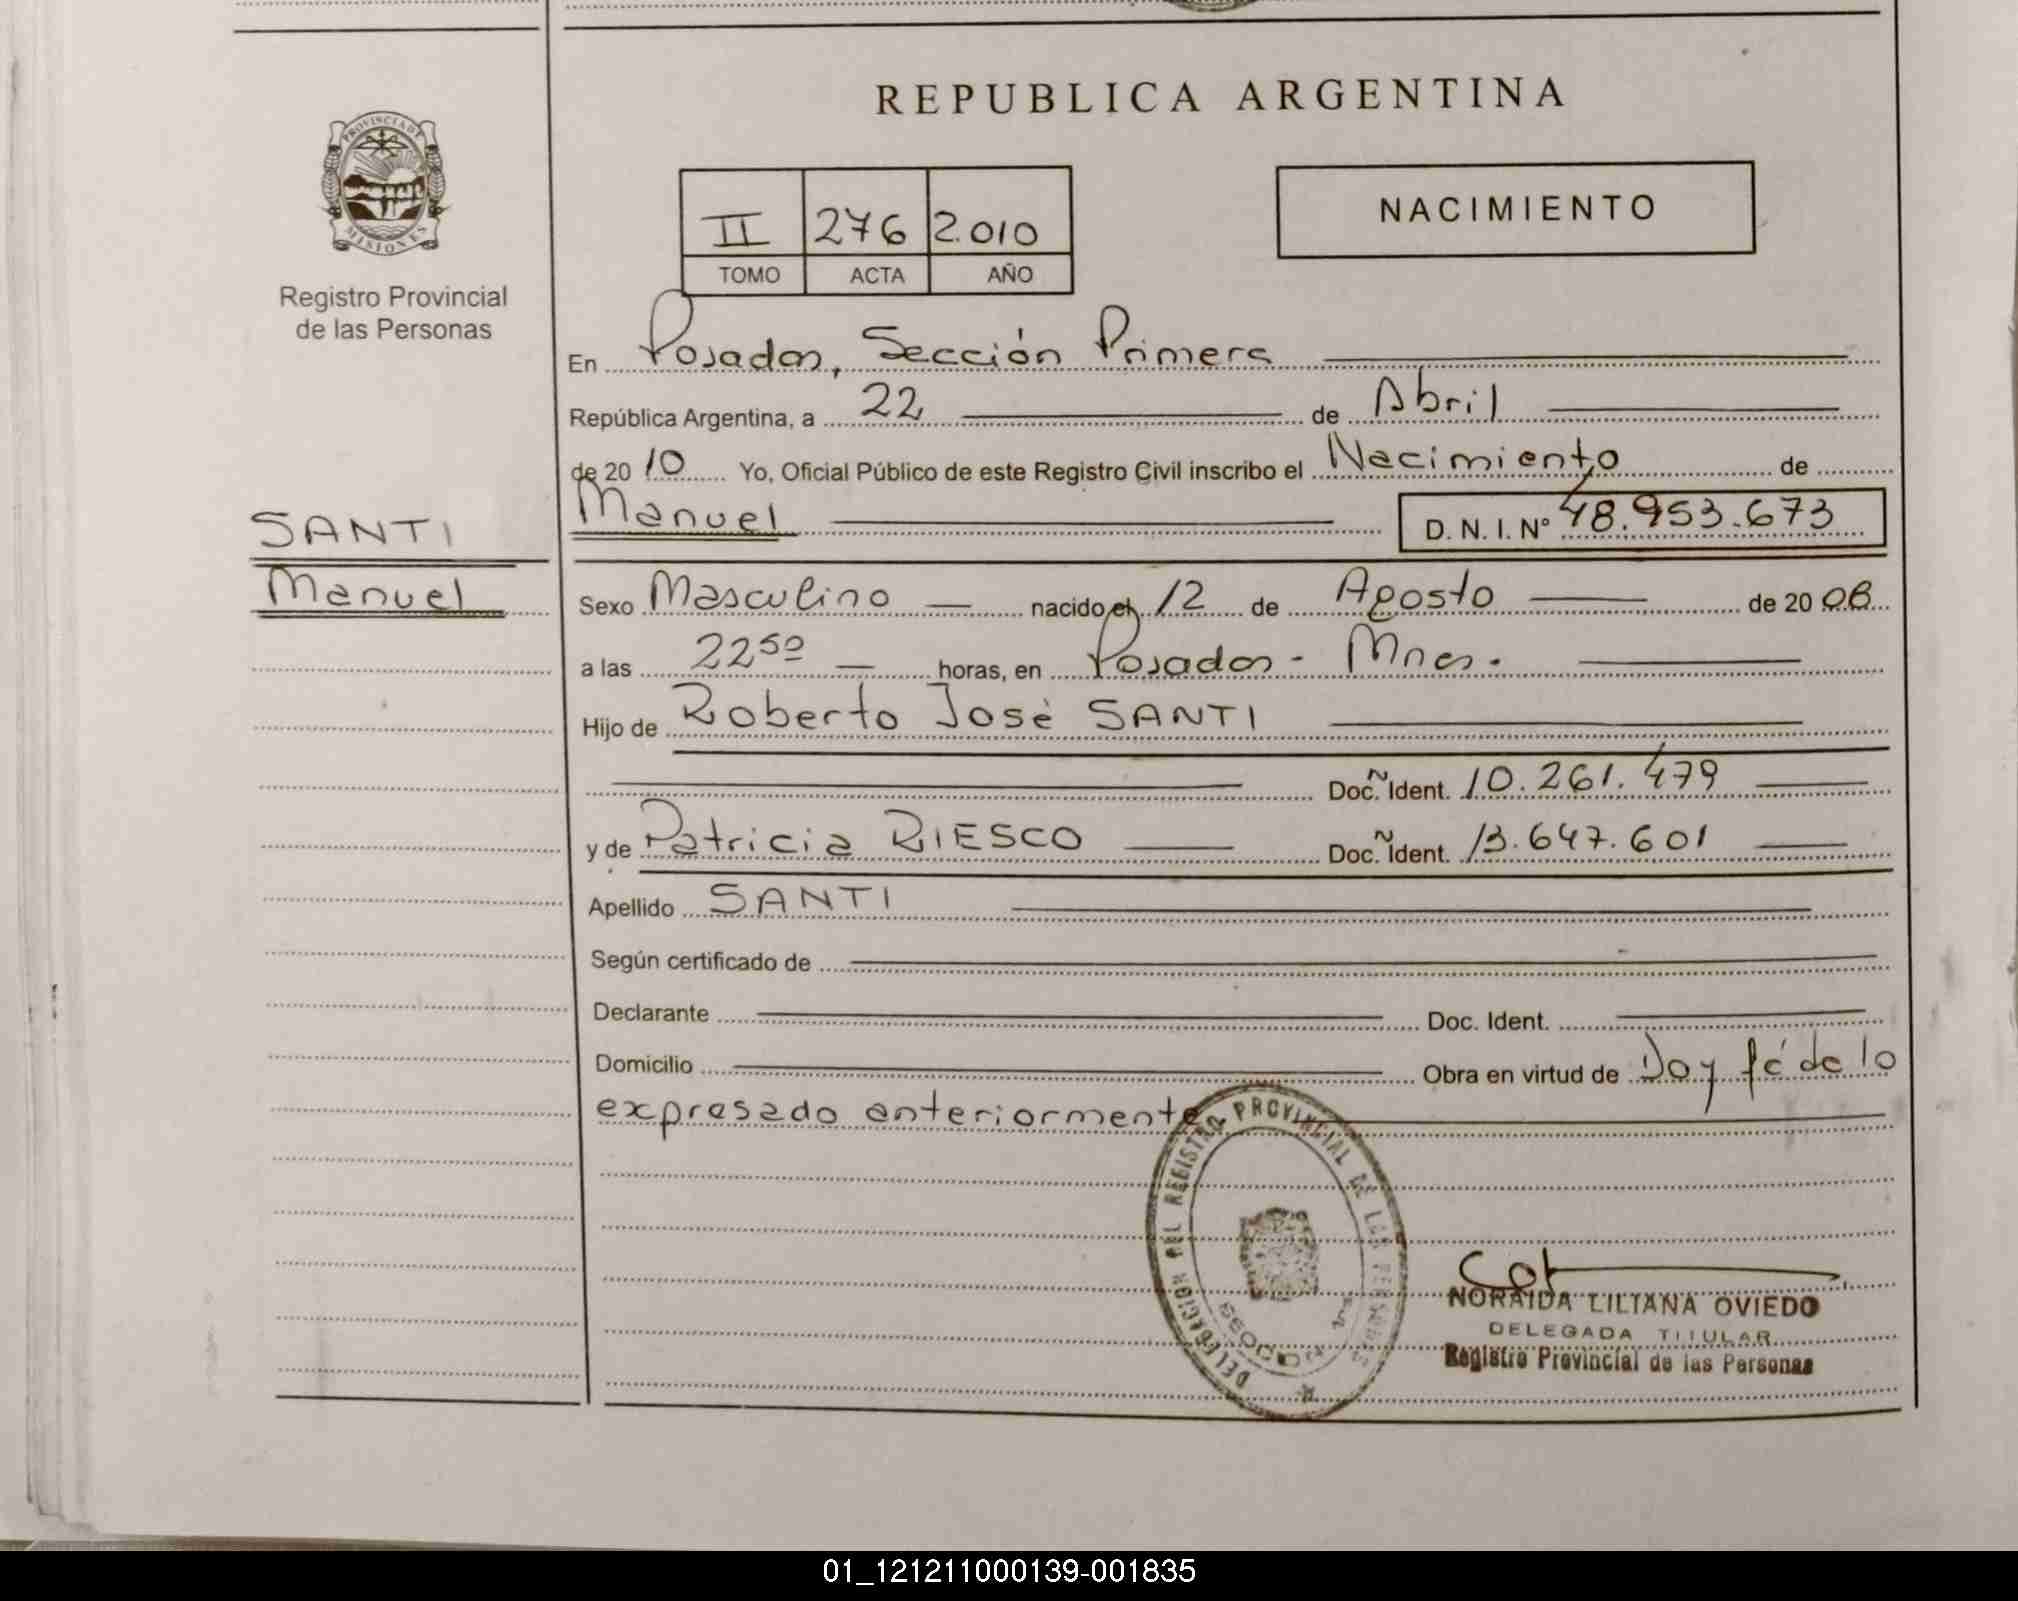 REPUBLICA ARGENTINA
PROVINCIA DE
MISIONES
Registro Provincial
de las Personas
II 276 2.010
TOMO ACTA AÑO
NACIMIENTO
En Posadas, Sección Primera
República Argentina, a 22 de Abril
de 2010 Yo, Oficial Público de este Registro Civil inscribo el Nacimiento de
Manuel D. N. I. Nº 48.953.673
SANTI
Manuel
Sexo Masculino nacido el 12 de Agosto de 2008
a las 22⁵⁰ horas, en Posadas - Mnes.
Hijo de Roberto José SANTI
Doc. Ident. 10.261.479
y de Patricia RIESCO Doc. Ident. 13.647.601
Apellido SANTI
Según certificado de
Declarante Doc. Ident.
Domicilio Obra en virtud de Doy fé de lo
expresado anteriormente
DELEGACION DEL REGISTRO PROVINCIAL DE LAS PERSONAS
NORAIDA LILIANA OVIEDO
DELEGADA TITULAR
Registro Provincial de las Personas
01_121211000139-001835